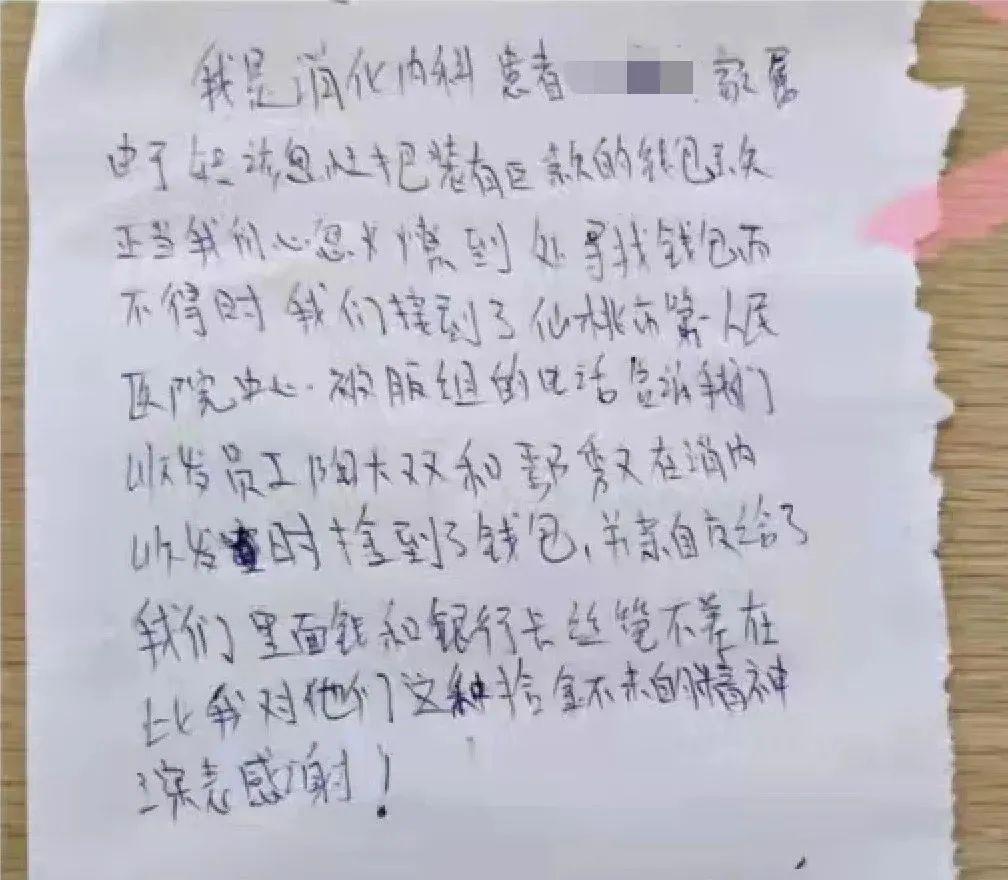 我是消化内科患者 家属
由于 把装有巨款的钱包丢失
正当我们心急火燎到处寻找钱包而
不得时我们接到了仙桃市第一人民
医院中心被服组的电话告诉我们
收发员工阳大双和 秀文在消内
收发时捡到了钱包,并亲自交给了
我们里面钱和银行卡丝毫不差在
此我对他们这种拾金不未的精神
深表感谢!